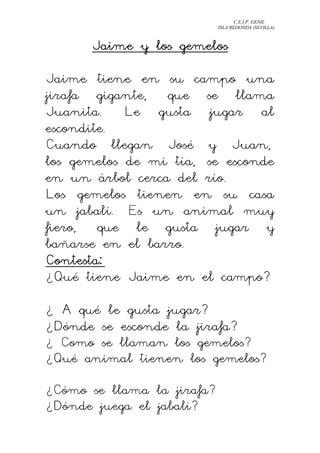 C.E.I.P. GENIL
ISLA REDONDA (SEVILLA)
Jaime y los gemelos
Jaime tiene en su campo una
jirafa gigante, que se llama
Juanita. Le gusta jugar al
escondite.
Cuando llegan José y Juan,
los gemelos de mi tía, se esconde
en un árbol cerca del río.
Los gemelos tienen en su casa
un jabalí. Es un animal muy
fiero, que le gusta jugar y
bañarse en el barro.
Contesta:
¿Qué tiene Jaime en el campo?
¿ A qué le gusta jugar?
¿Dónde se esconde la jirafa?
¿ Como se llaman los gemelos?
¿Qué animal tienen los gemelos?
¿Cómo se llama la jirafa?
¿Dónde juega el jabalí?